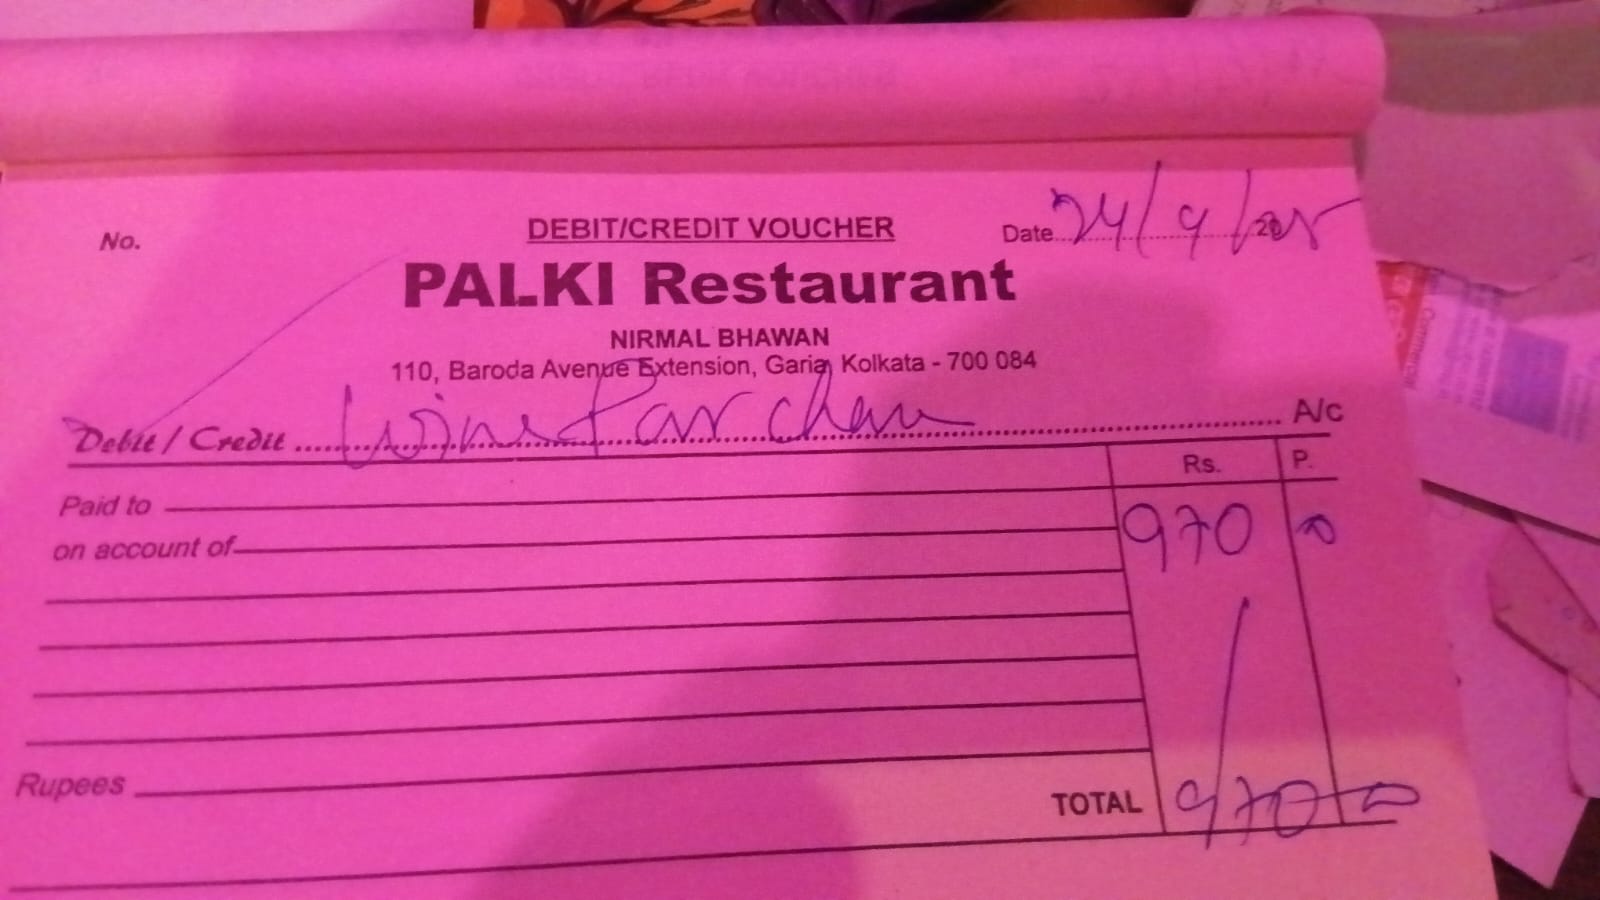 No.
DEBIT/CREDIT VOUCHER
Date 24/9/2025
PALKI Restaurant
NIRMAL BHAWAN
110, Baroda Avenue Extension, Garia, Kolkata - 700 084
Debit / Credit Wine Parchau A/c
Rs. P.
Paid to
970
on account of
Rupees
TOTAL 970